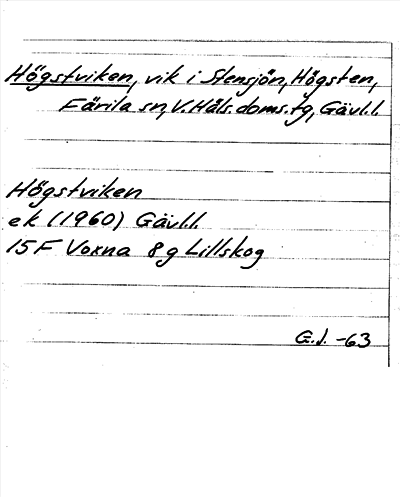 Högstviken, vik i Stensjön, Högsten,
Färila sn, V. Häls. doms. tg, Gävl.l.
Högstviken
ek (1960) Gävl.l.
15F Voxna 8g Lillskog
G.J. -63